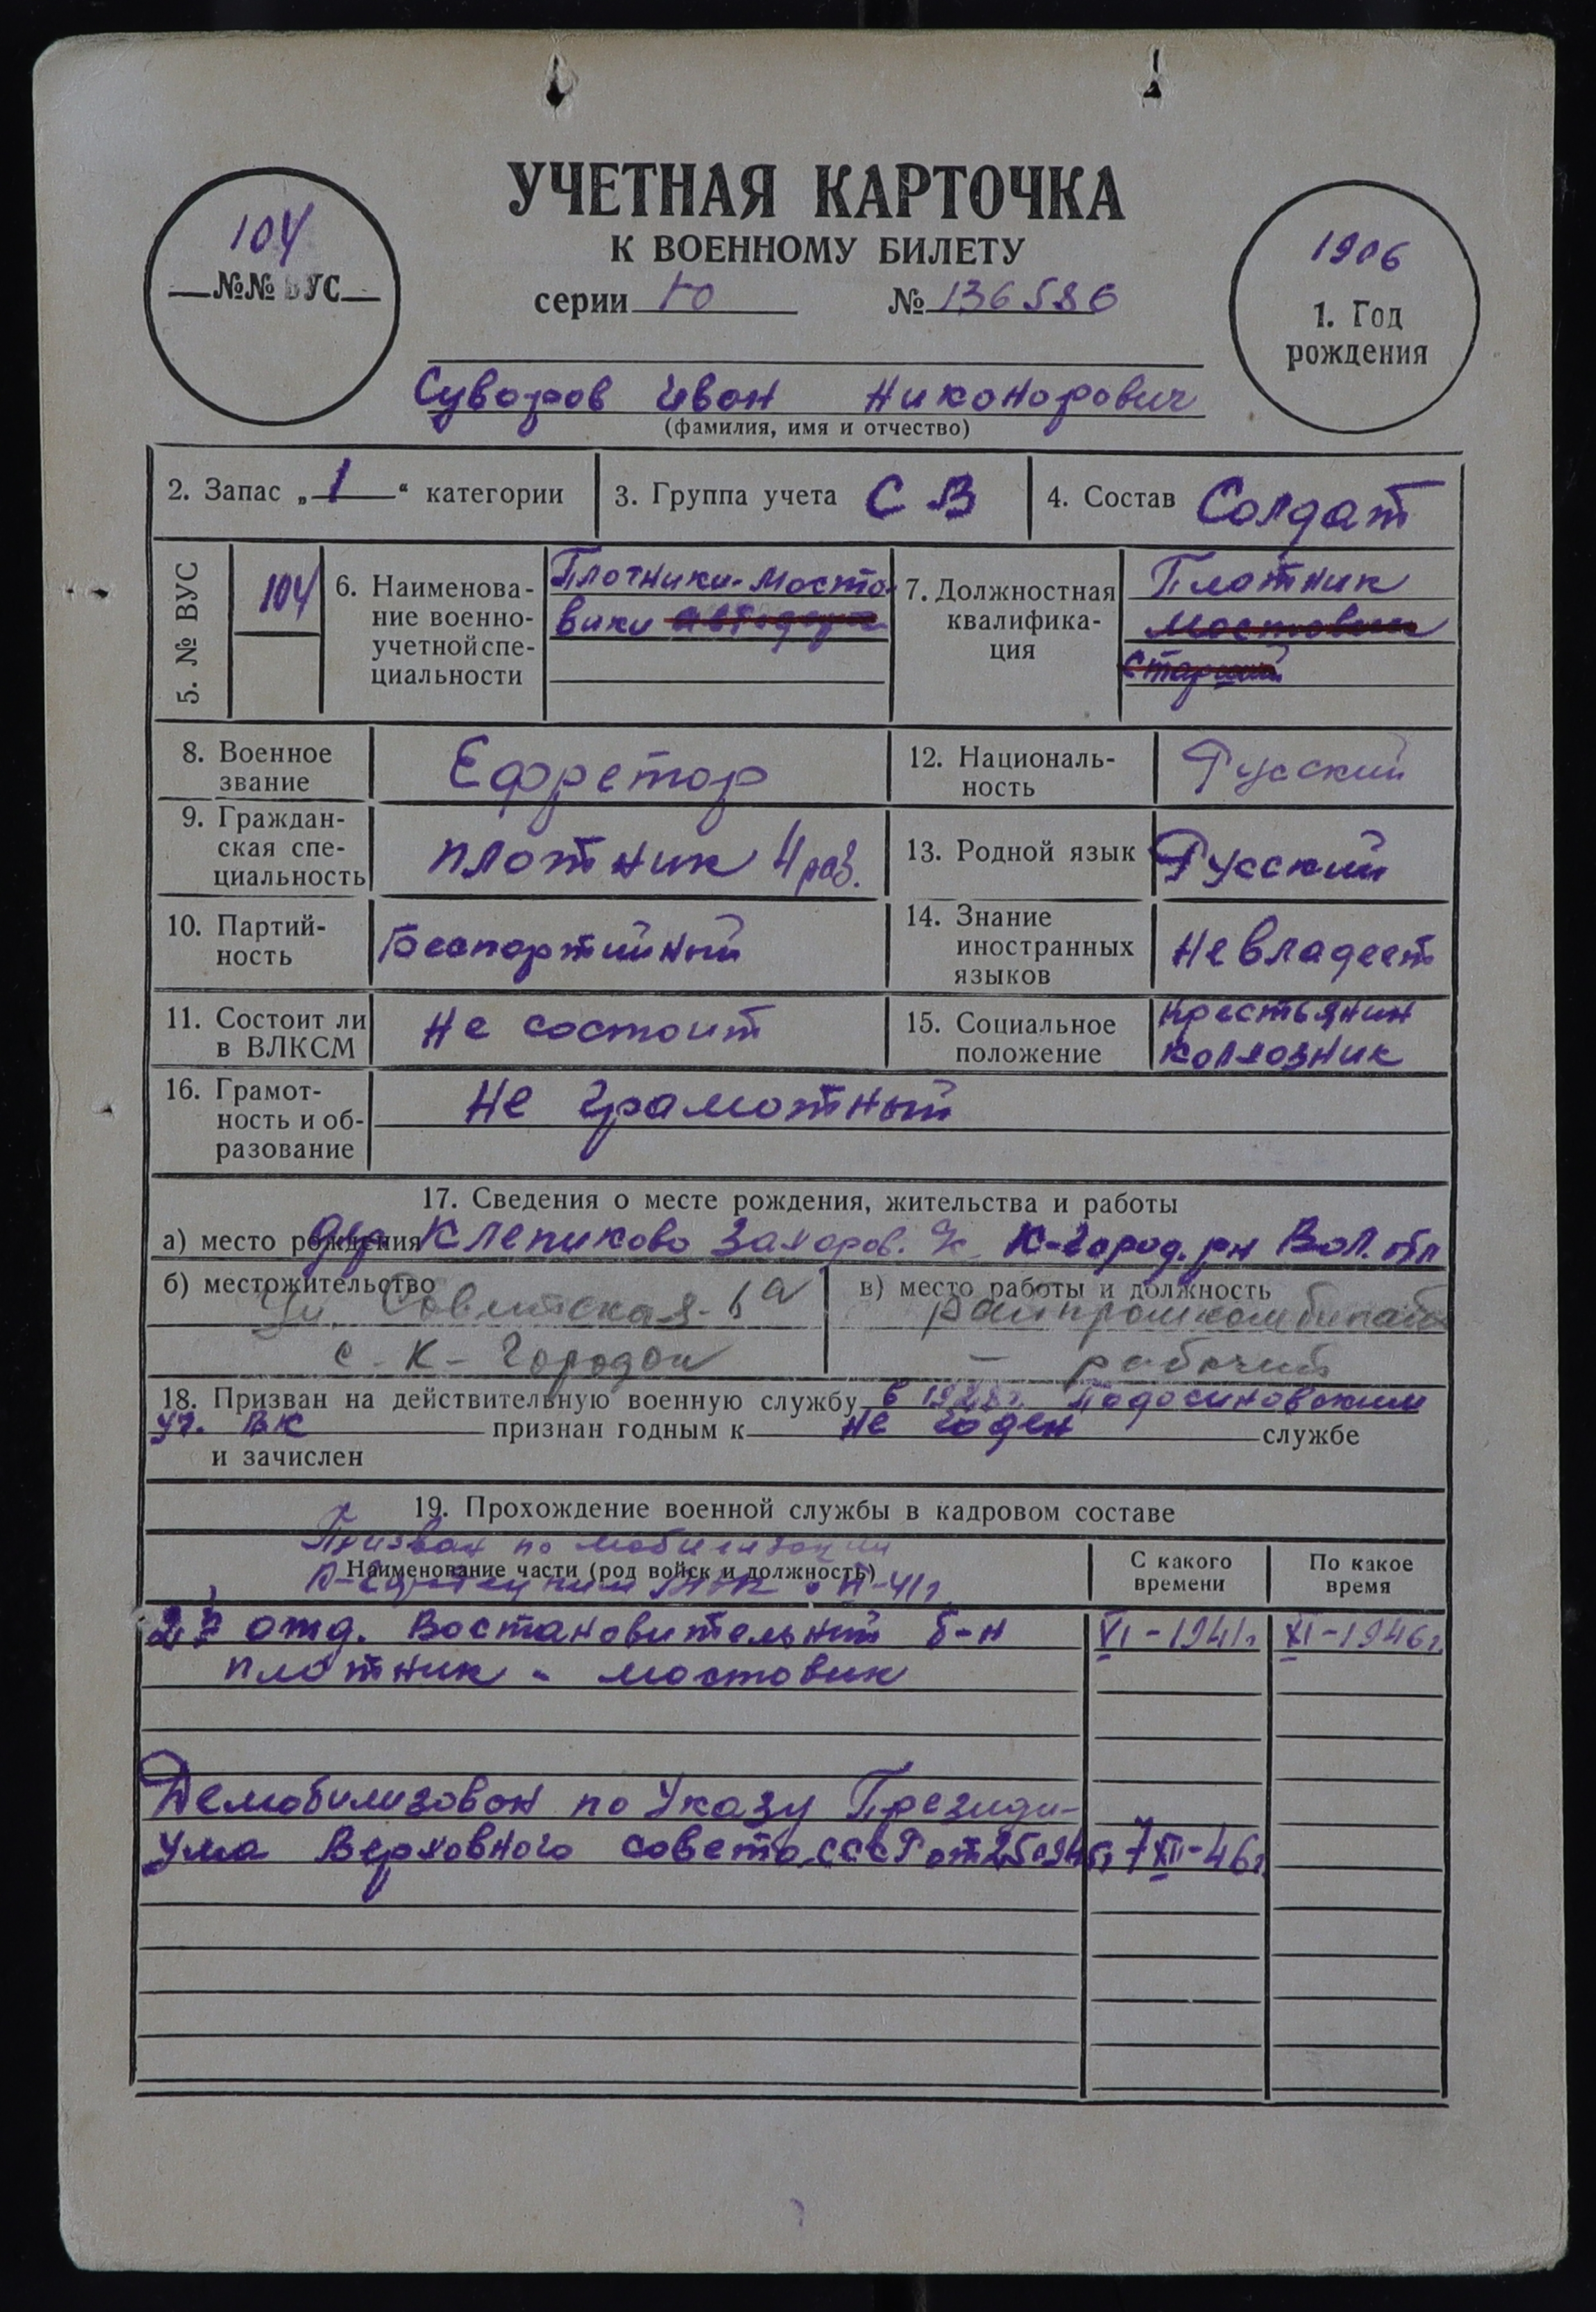 УЧЕТНАЯ КАРТОЧКА
К ВОЕННОМУ БИЛЕТУ
серии Ю № 136586
104
№№ ВУС
1906
1. Год
рождения
Суворов Иван Никонорович
(фамилия, имя и отчество)
2. Запас „1“ категории
3. Группа учета СВ
4. Состав Солдат
5. № ВУС
104
6. Наименова-
ние военно-
учетной спе-
циальности
Плотники-мосто
вики
7. Должностная
квалифика-
ция
Плотник
мостовик
старший
8. Военное
звание
Ефретор
12. Националь-
ность
Русский
9. Граждан-
ская спе-
циальность
плотник 4 раз.
13. Родной язык Русский
10. Партий-
ность
Беспартийный
14. Знание
иностранных
языков
Не владеет
11. Состоит ли
в ВЛКСМ
Не состоит
15. Социальное
положение
Крестьянин
колхозник
16. Грамот-
ность и об-
разование
Не грамотный
17. Сведения о месте рождения, жительства и работы
а) место рождения дер Клепиково Захаров. с/с К-Город. рн Вол. обл
б) местожительство
ул. Советская-6а
с. К-Городок
в) место работы и должность
райпромкомбинат
- рабочий
18. Призван на действительную военную службу в 1928г. Подосиновским
уг. ВК признан годным к не годен службе
и зачислен
19. Прохождение военной службы в кадровом составе
Призван по мобилизации
Наименование части (род войск и должность)
С какого
времени
По какое
время
27 отд. Востановительный б-н VI-1941г. XI-1946г.
плотник - мостовик
Демобилизован по Указу Президи-
ума Верховного совета СССР от 25.9.45г. 7 XII-46г.